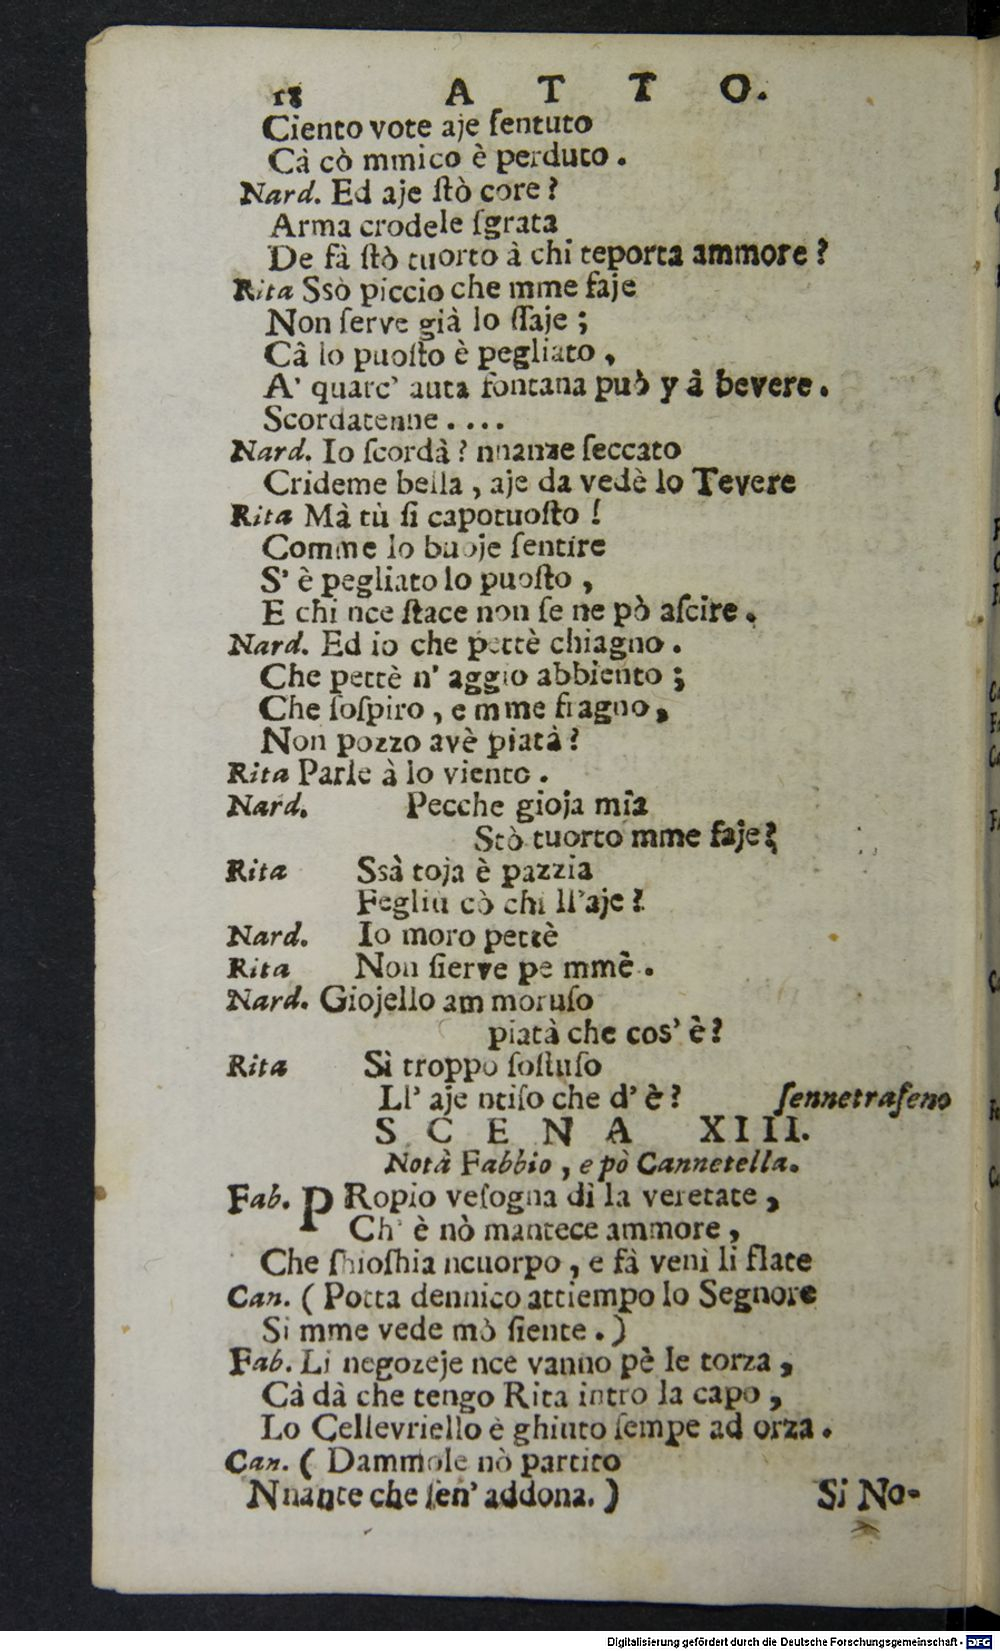 18 A T T O.
Ciento vote aje ſentuto
Cà cò mmico è perduto.
Nard. Ed aje ſtò core?
Arma crodele ſgrata
De fà ſtò tuorto à chi teporta ammore?
Rita Ssò piccio che mme faje
Non ſerve già lo ſſaje;
Cà lo puoſto è pegliato,
A' quarc' auta fontana può y à bevere.
Scordatenne....
Nard. Io ſcordà? nnanze ſeccato
Crideme bella, aje da vedè lo Tevere
Rita Mà tù ſi capotuoſto!
Comme lo buoje ſentire
S' è pegliato lo puoſto,
E chi nce ſtace non ſe ne pò aſcire.
Nard. Ed io che pettè chiagno.
Che pettè n' aggio abbiento;
Che ſoſpiro, e mme fragno,
Non pozzo avè piatà?
Rita Parle à lo viento.
Nard. Pecche gioja mia
Stò tuorto mme faje?
Rita Ssà toja è pazzia
Fegliù cò chi ll'aje?
Nard. Io moro pettè
Rita Non ſierve pe mmè.
Nard. Giojello ammoruſo
piatà che cos' è?
Rita Sì troppo ſoſtuſo
Ll' aje ntiſo che d' è? ſennetraſeno
S C E N A XIII.
Notà Fabbio, e pò Cannetella.
Fab. PRopio veſogna dì la veretate,
Ch' è nò mantece ammore,
Che ſhioſhia ncuorpo, e fà venì li flate
Can. (Potta dennico attiempo lo Segnore
Si mme vede mò ſiente.)
Fab. Li negozeje nce vanno pè le torza,
Cà dà che tengo Rita intro la capo,
Lo Cellevriello è ghiuto ſempe ad orza.
Can. (Dammole nò partito
Nnante che ſen' addona.) Si No-
Digitalisierung gefördert durch die Deutsche Forschungsgemeinschaft - DFG